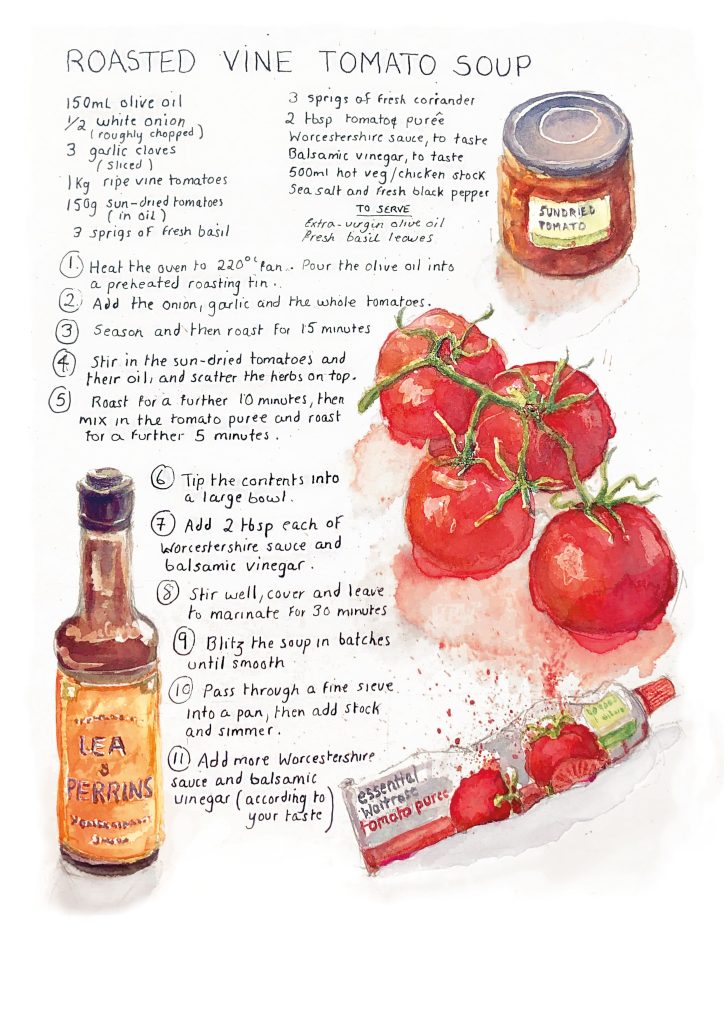 ROASTED VINE TOMATO SOUP
150mL olive oil
1/2 white onion
(roughly chopped)
3 garlic cloves
(sliced)
1Kg ripe vine tomatoes
150g sun-dried tomatoes
(in oil)
3 sprigs of fresh basil
3 sprigs of fresh corriander
2 tbsp tomato purêe
Worcestershire sauce, to taste
Balsamic vinegar, to taste
500ml hot veg/chicken stock
Sea salt and fresh black pepper
TO SERVE
Extra-virgin olive oil
Fresh basil leaves
SUNDRIED
TOMATO
1. Heat the oven to 220°C fan. Pour the olive oil into
a preheated roasting tin.
2 Add the onion, garlic and the whole tomatoes.
3 Season and then roast for 15 minutes
4 Stir in the sun-dried tomatoes and
their oil, and scatter the herbs on top.
5 Roast for a further 10 minutes, then
mix in the tomato puree and roast
for a further 5 minutes.
6 Tip the contents into
a large bowl.
7 Add 2 tbsp each of
Worcestershire sauce and
balsamic vinegar.
8 Stir well, cover and leave
to marinate for 30 minutes
9 Blitz the soup in batches
until smooth
10 Pass through a fine sieve
into a pan, then add stock
and simmer.
11 Add more Worcestershire
sauce and balsamic
vinegar (according to
your taste)
LEA
&
PERRINS
essential
Waitrose
tomato puree